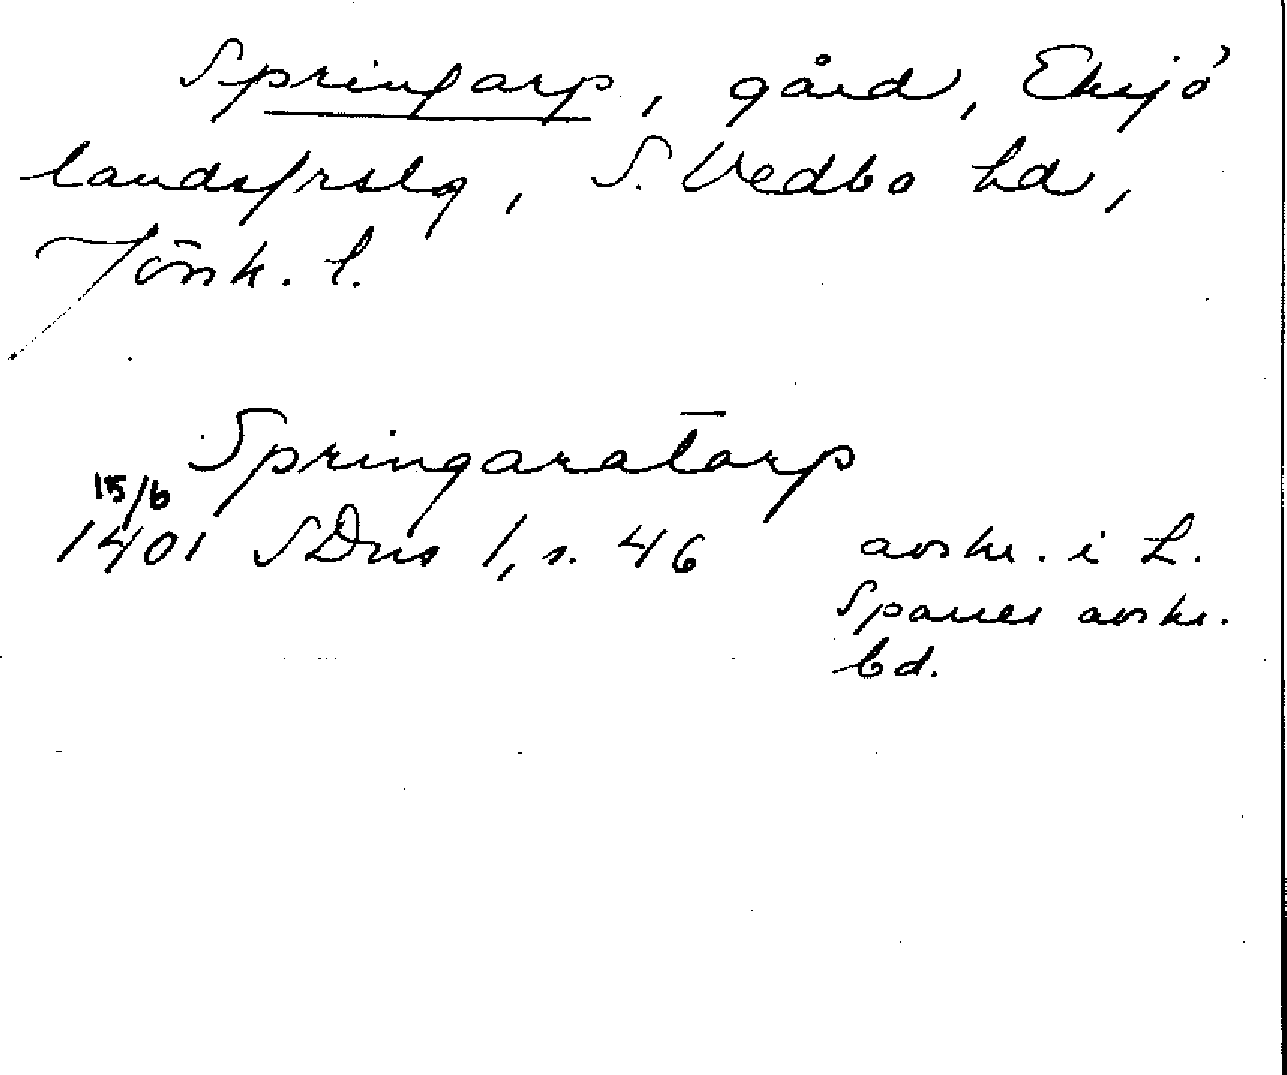 Springarp, gård, Eksjö
landsfrslg, S. Vedbo hd,
Jönk. l.
Springaratorp
15/6
1401 SDns 1, s. 46 avskr. i L.
Sparres avskr.
bd.